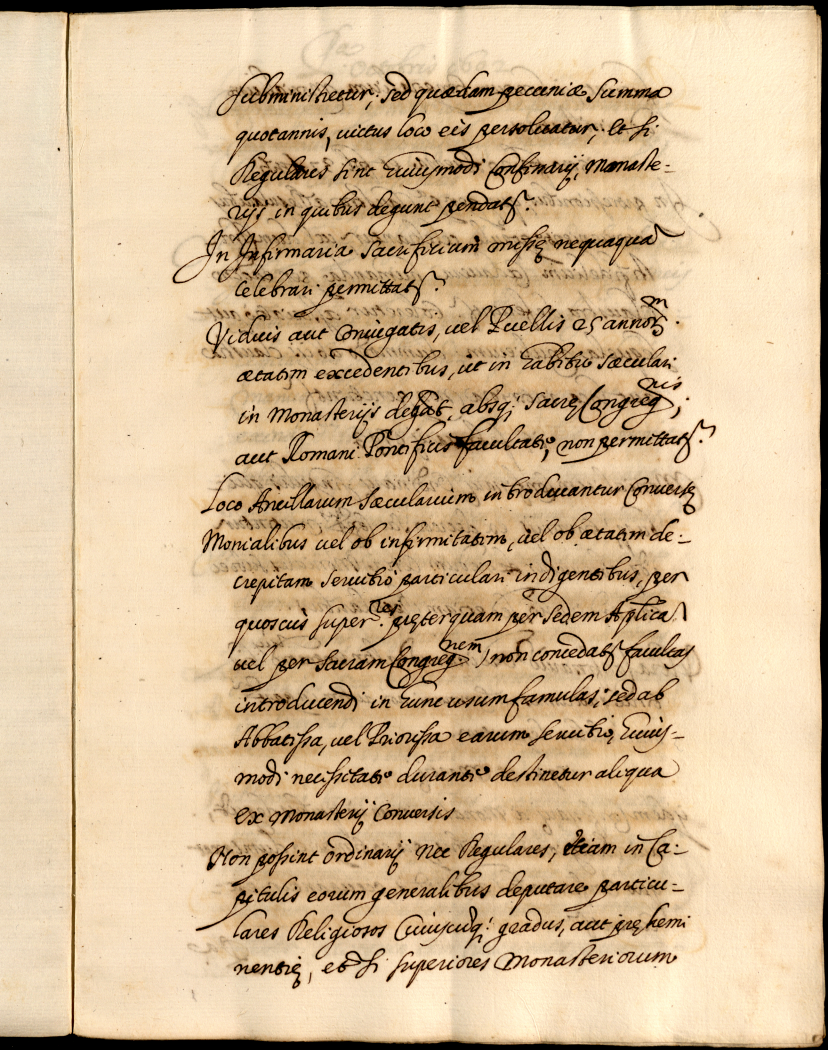 subministretur, sed quædam pecuniæ summa
quotannis, victus loco eis persolvatur, et si
Regulares sint huiusmodi Confinarij, Monaste-
rijs in quibus degunt pendatr.
In Infirmaria sacrificium missę nequaqua
celebrari permittatr.
Viduis aut coniugatis, vel Puellis 25 annorm
ætatem excedentibus, ut in habitu sæculari
in Monasterijs degāt, absq; sacrę Congregnis,
aut Romani Pontificis facultate, non permittatr.
Loco Ancillarum sæcularium introducantur Conversę
Monialibus vel ob infirmitatem, vel ob ætatem de-
crepitam servitio particulari indigentibus, per
quoscūs superres pręterquam per sedem Aplica
vel per sacram Congregnem, non concedatr facultas
introducendi in hunc usum famulas, sed ab
Abbatissa, vel Priorissa earum servitio, huius-
modi necessitate durante destinetur aliqua
ex Monasterij Conversis
Non possint ordinarij nec Regulares, etiam in Ca-
pitulis eorum generalibus deputare particu-
lares Religiosos cuiuscuq; gradus, aut pręhemi
nentię, et si superiores Monasteriorum